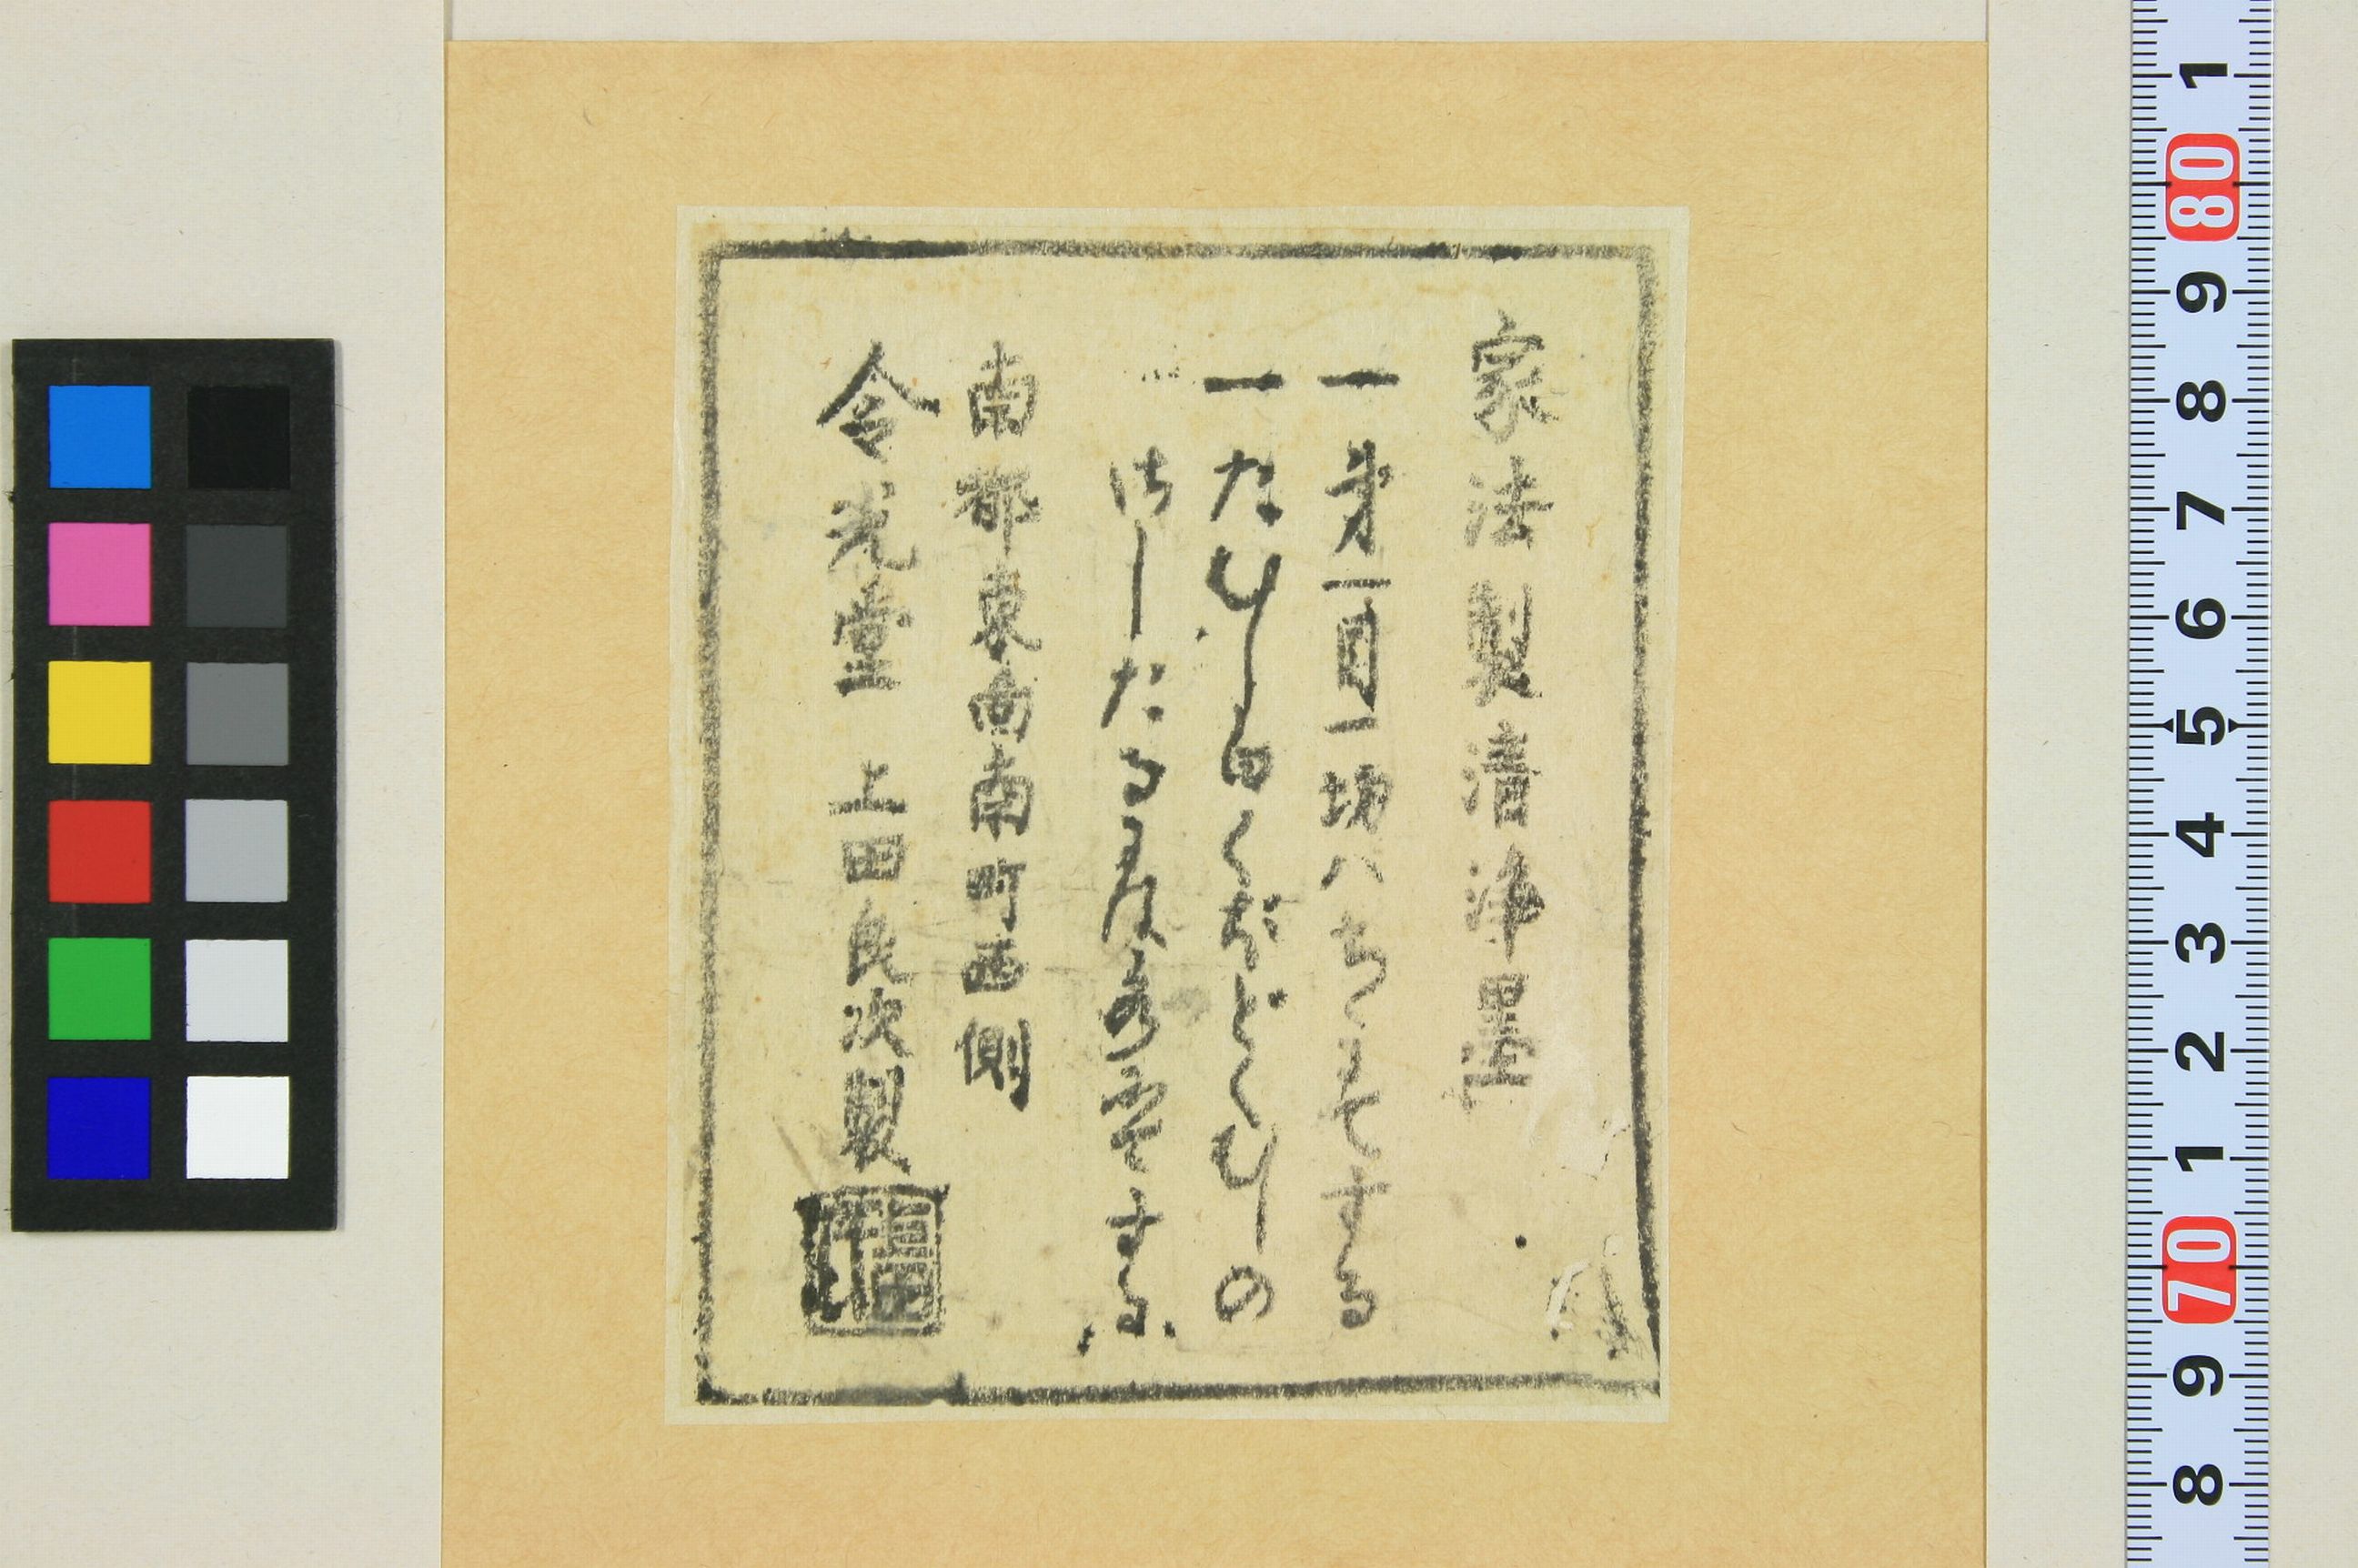 家法製清浄墨
一第一目一切ハちくをする
一たり田くだどくりの
はしたる
する
南都東向南町西側
令光堂 上田良次製
1
80
9
8
7
6
5
4
3
2
1
70
9
8